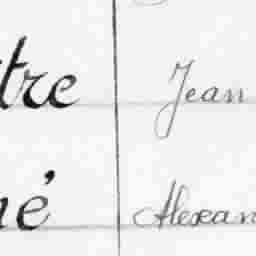 tre Jean
né Alexan